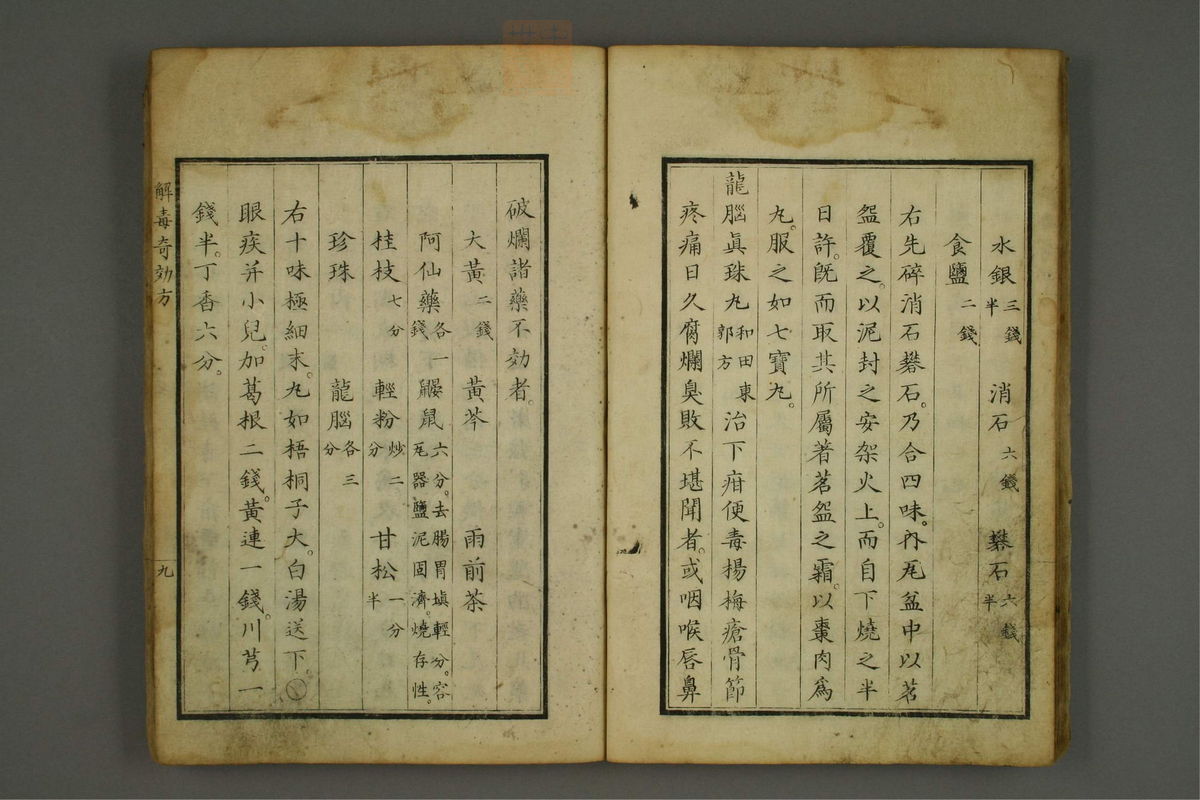 水銀三錢半 消石六錢 礬石六錢半
食鹽二錢
右先碎消石礬石。乃合四味。內瓦盆中以茗
盌覆之。以泥封之安架火上。而自下燒之半
日許。既而取其所屬著茗盌之霜。以棗肉爲
丸。服之如七寶丸。
龍腦眞珠丸和田東郭方 治下疳便毒楊梅瘡骨節
疼痛日久腐爛臭敗不堪聞者。或咽喉唇鼻
破爛諸藥不効者。
大黃二錢 黃芩 雨前茶
阿仙藥各一錢 鼹鼠六分。去腸胃塡輕分。容瓦器鹽泥固濟。燒存性。
桂枝七分 輕粉炒二分 甘松一分半
珍珠 龍腦各三分
右十味極細末。丸如梧桐子大。白湯送下。
眼疾并小兒。加葛根二錢。黃連一錢。川芎一
錢半。丁香六分。
解毒奇効方
九